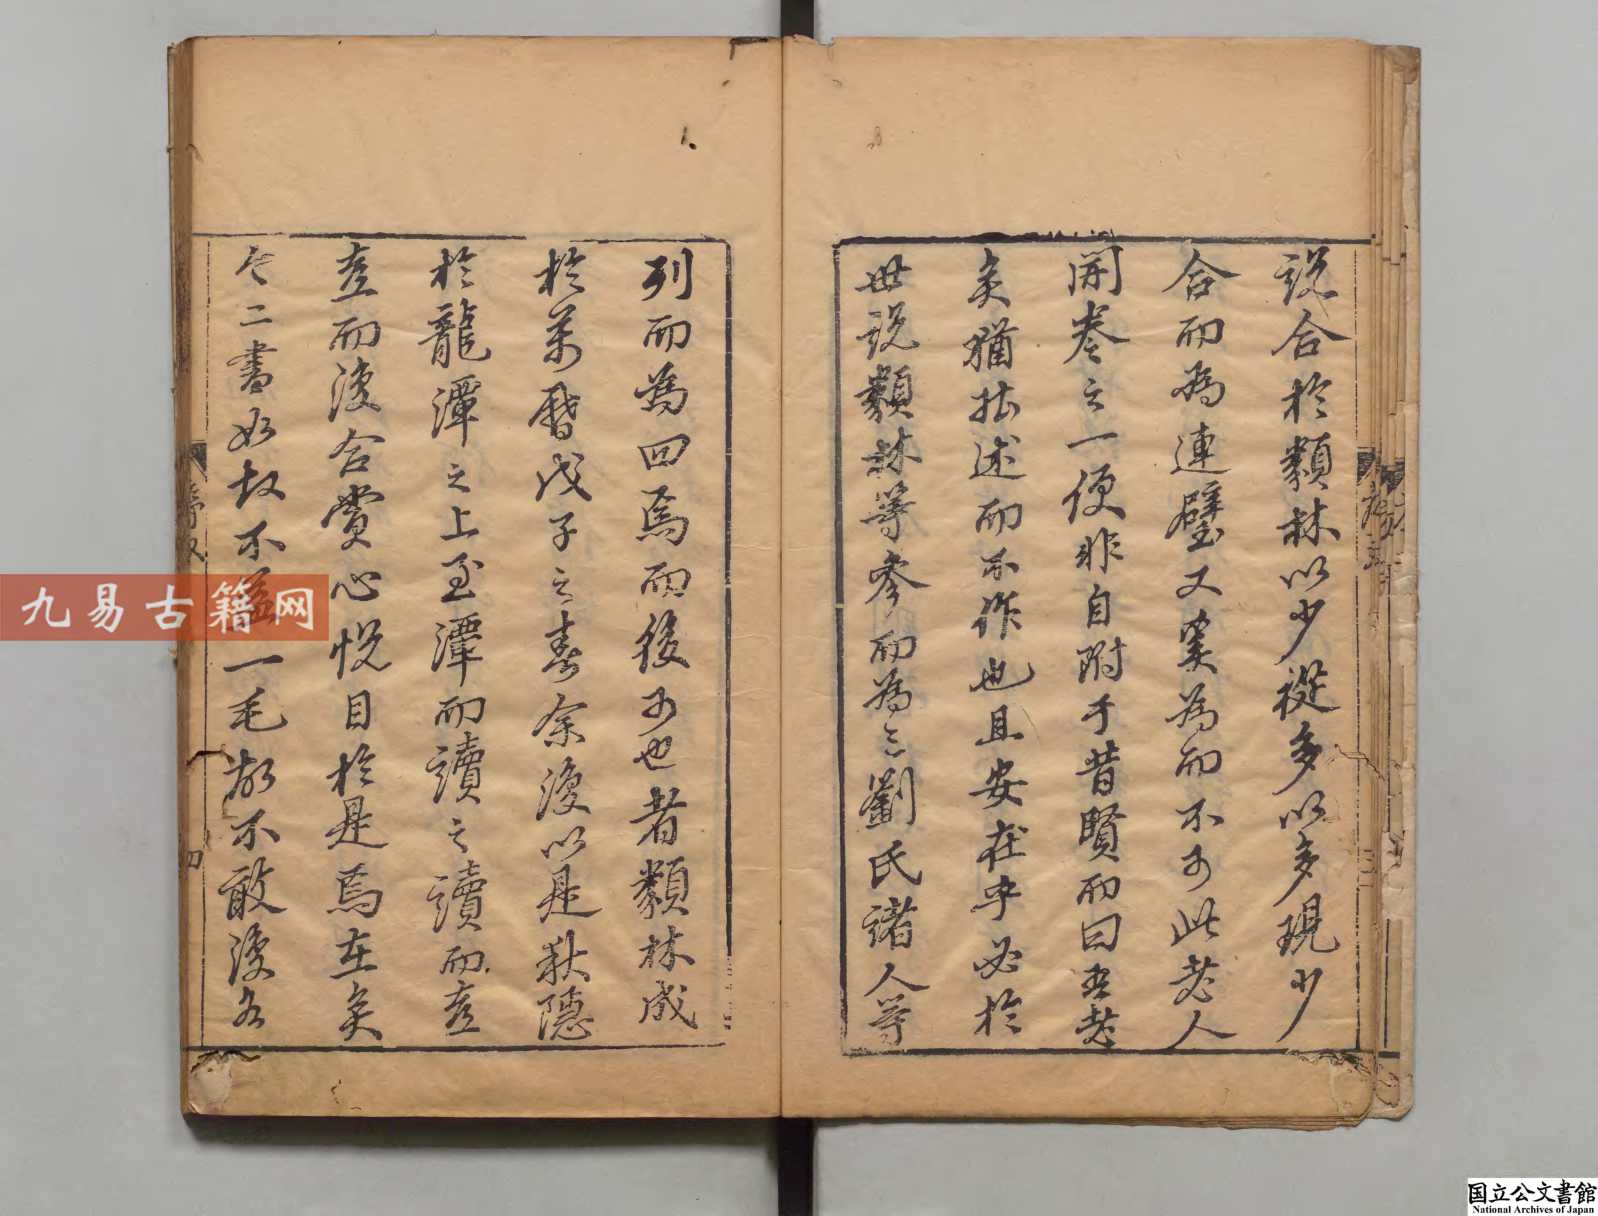 說合於類林以少從多以多現少
合而為連璧又奚為而不可此老人
開卷之一便非自附于昔賢而曰吾老
矣猶拙述而不作也且安在乎必於
世說類林等參而為三劉氏諸人等
列而為四焉而後可也者類林成
於萬曆戊子之春余復以是秋隱
於龍潭之上至潭而讀之讀而喜
喜而復合賞心悅目於是焉在矣
今二書如故不益一毛故不敢復名
九易古籍网
国立公文書館
National Archives of Japan